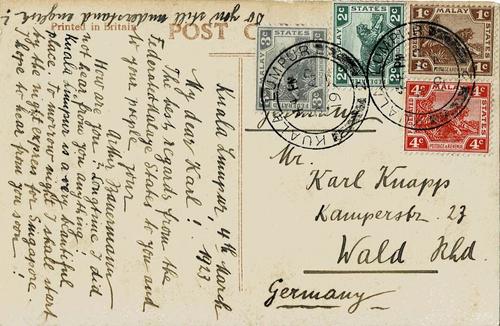 Do you still understand english?
Printed in Britain
POST
Kuala Lumpur, 4th March
1923
My dear Karl!
The best regards from the
Federated Malay States to you and
to your people
your
How are you? Longtime I did
not hear from you anything!
Kuala Lumpur is a very beautiful
place. To-morrow night I shall start
by the night express for Singapore.
I hope to hear from you soon!
STATES
MALAY
3c
STATES
2c
2c
MALAY
1c
1c
STATES
MALAY
4c
4c
POSTAGE & REVENUE
KUALA LUMPUR
KUALA LUMPUR
Germany
Mr.
Karl Knapp
Kamperstr. 23
Wald Rhd.
Germany